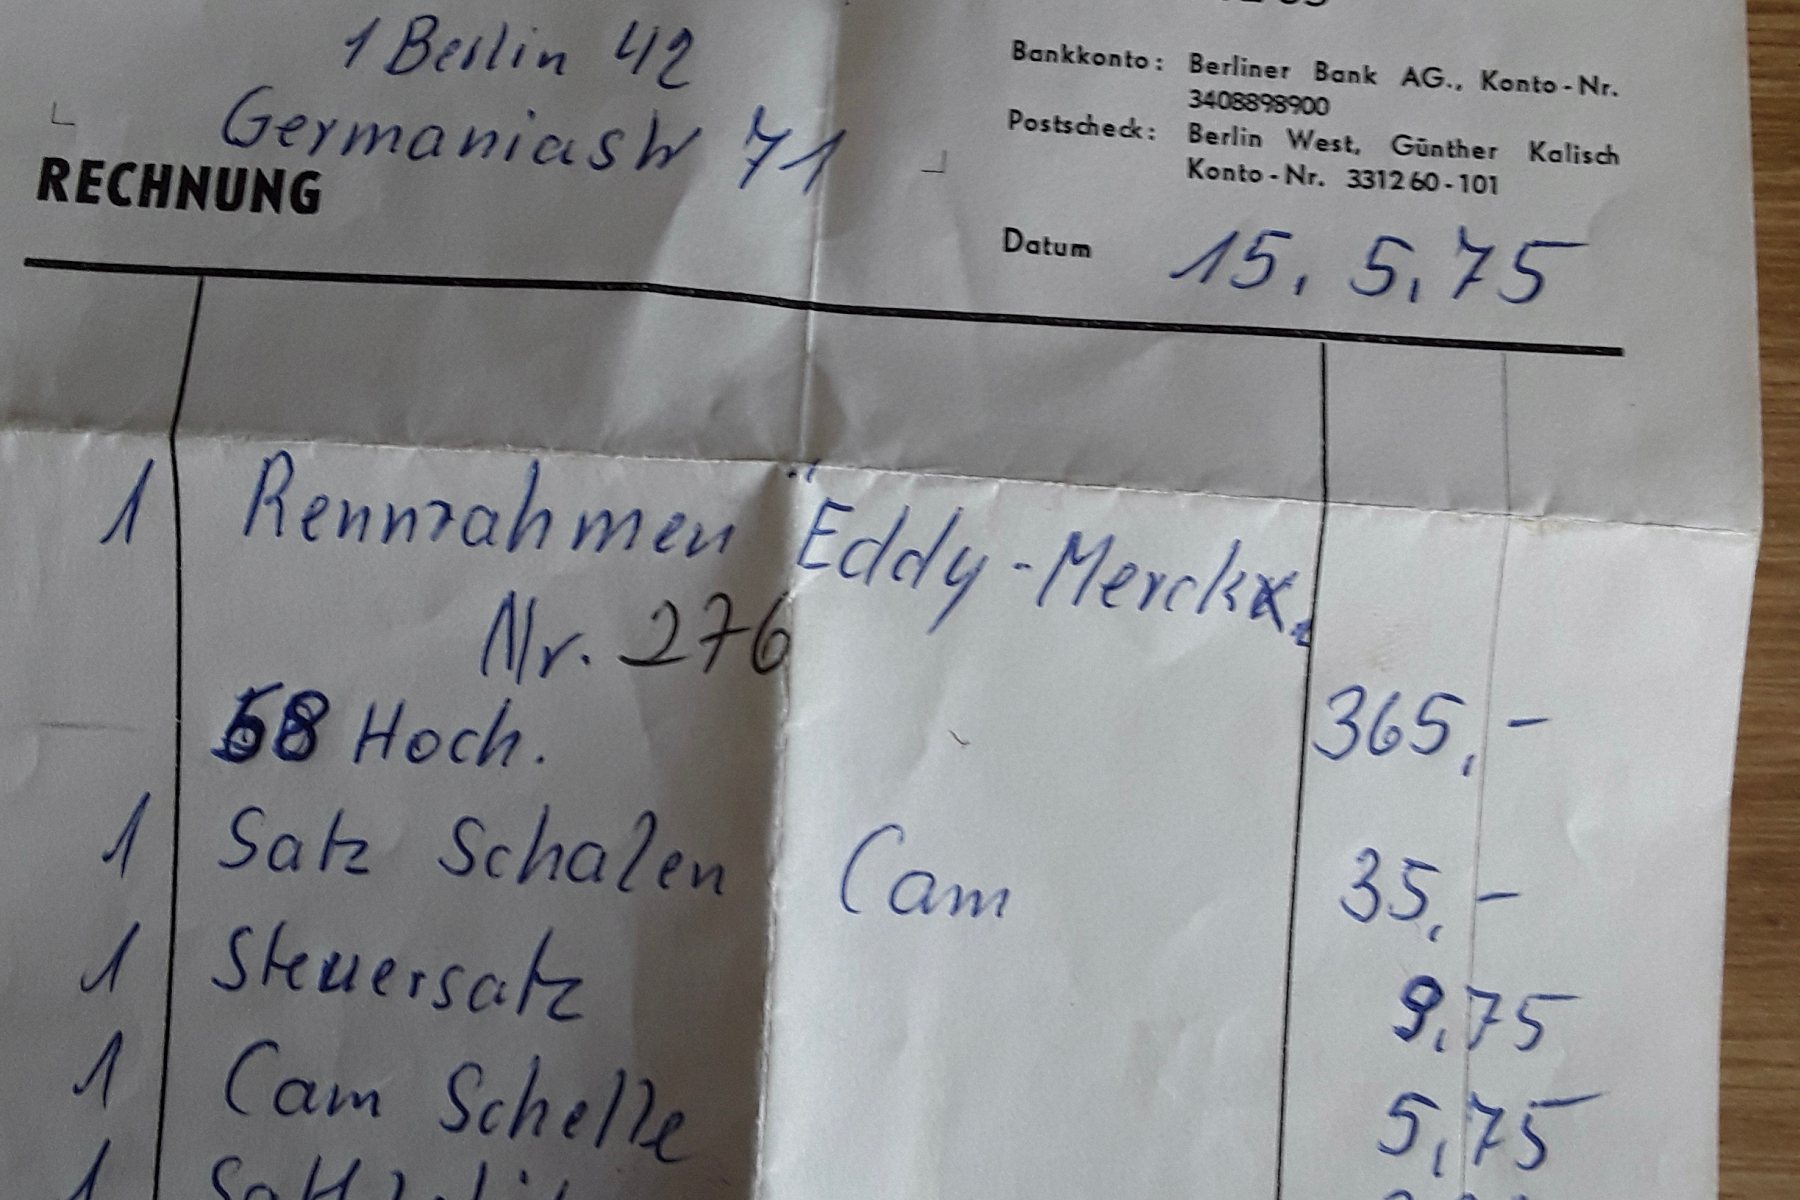 1 Berlin 42
Germaniastr 71
Bankkonto: Berliner Bank AG., Konto-Nr.
3408898900
Postscheck: Berlin West, Günther Kalisch
Konto-Nr. 331260-101
RECHNUNG
Datum 15.5.75
1 Rennrahmen "Eddy-Merckx"
Nr. 276
58 Hoch. 365,-
1 Satz Schalen Cam 35,-
1 Steuersatz 9,75
1 Cam Schelle 5,75
1